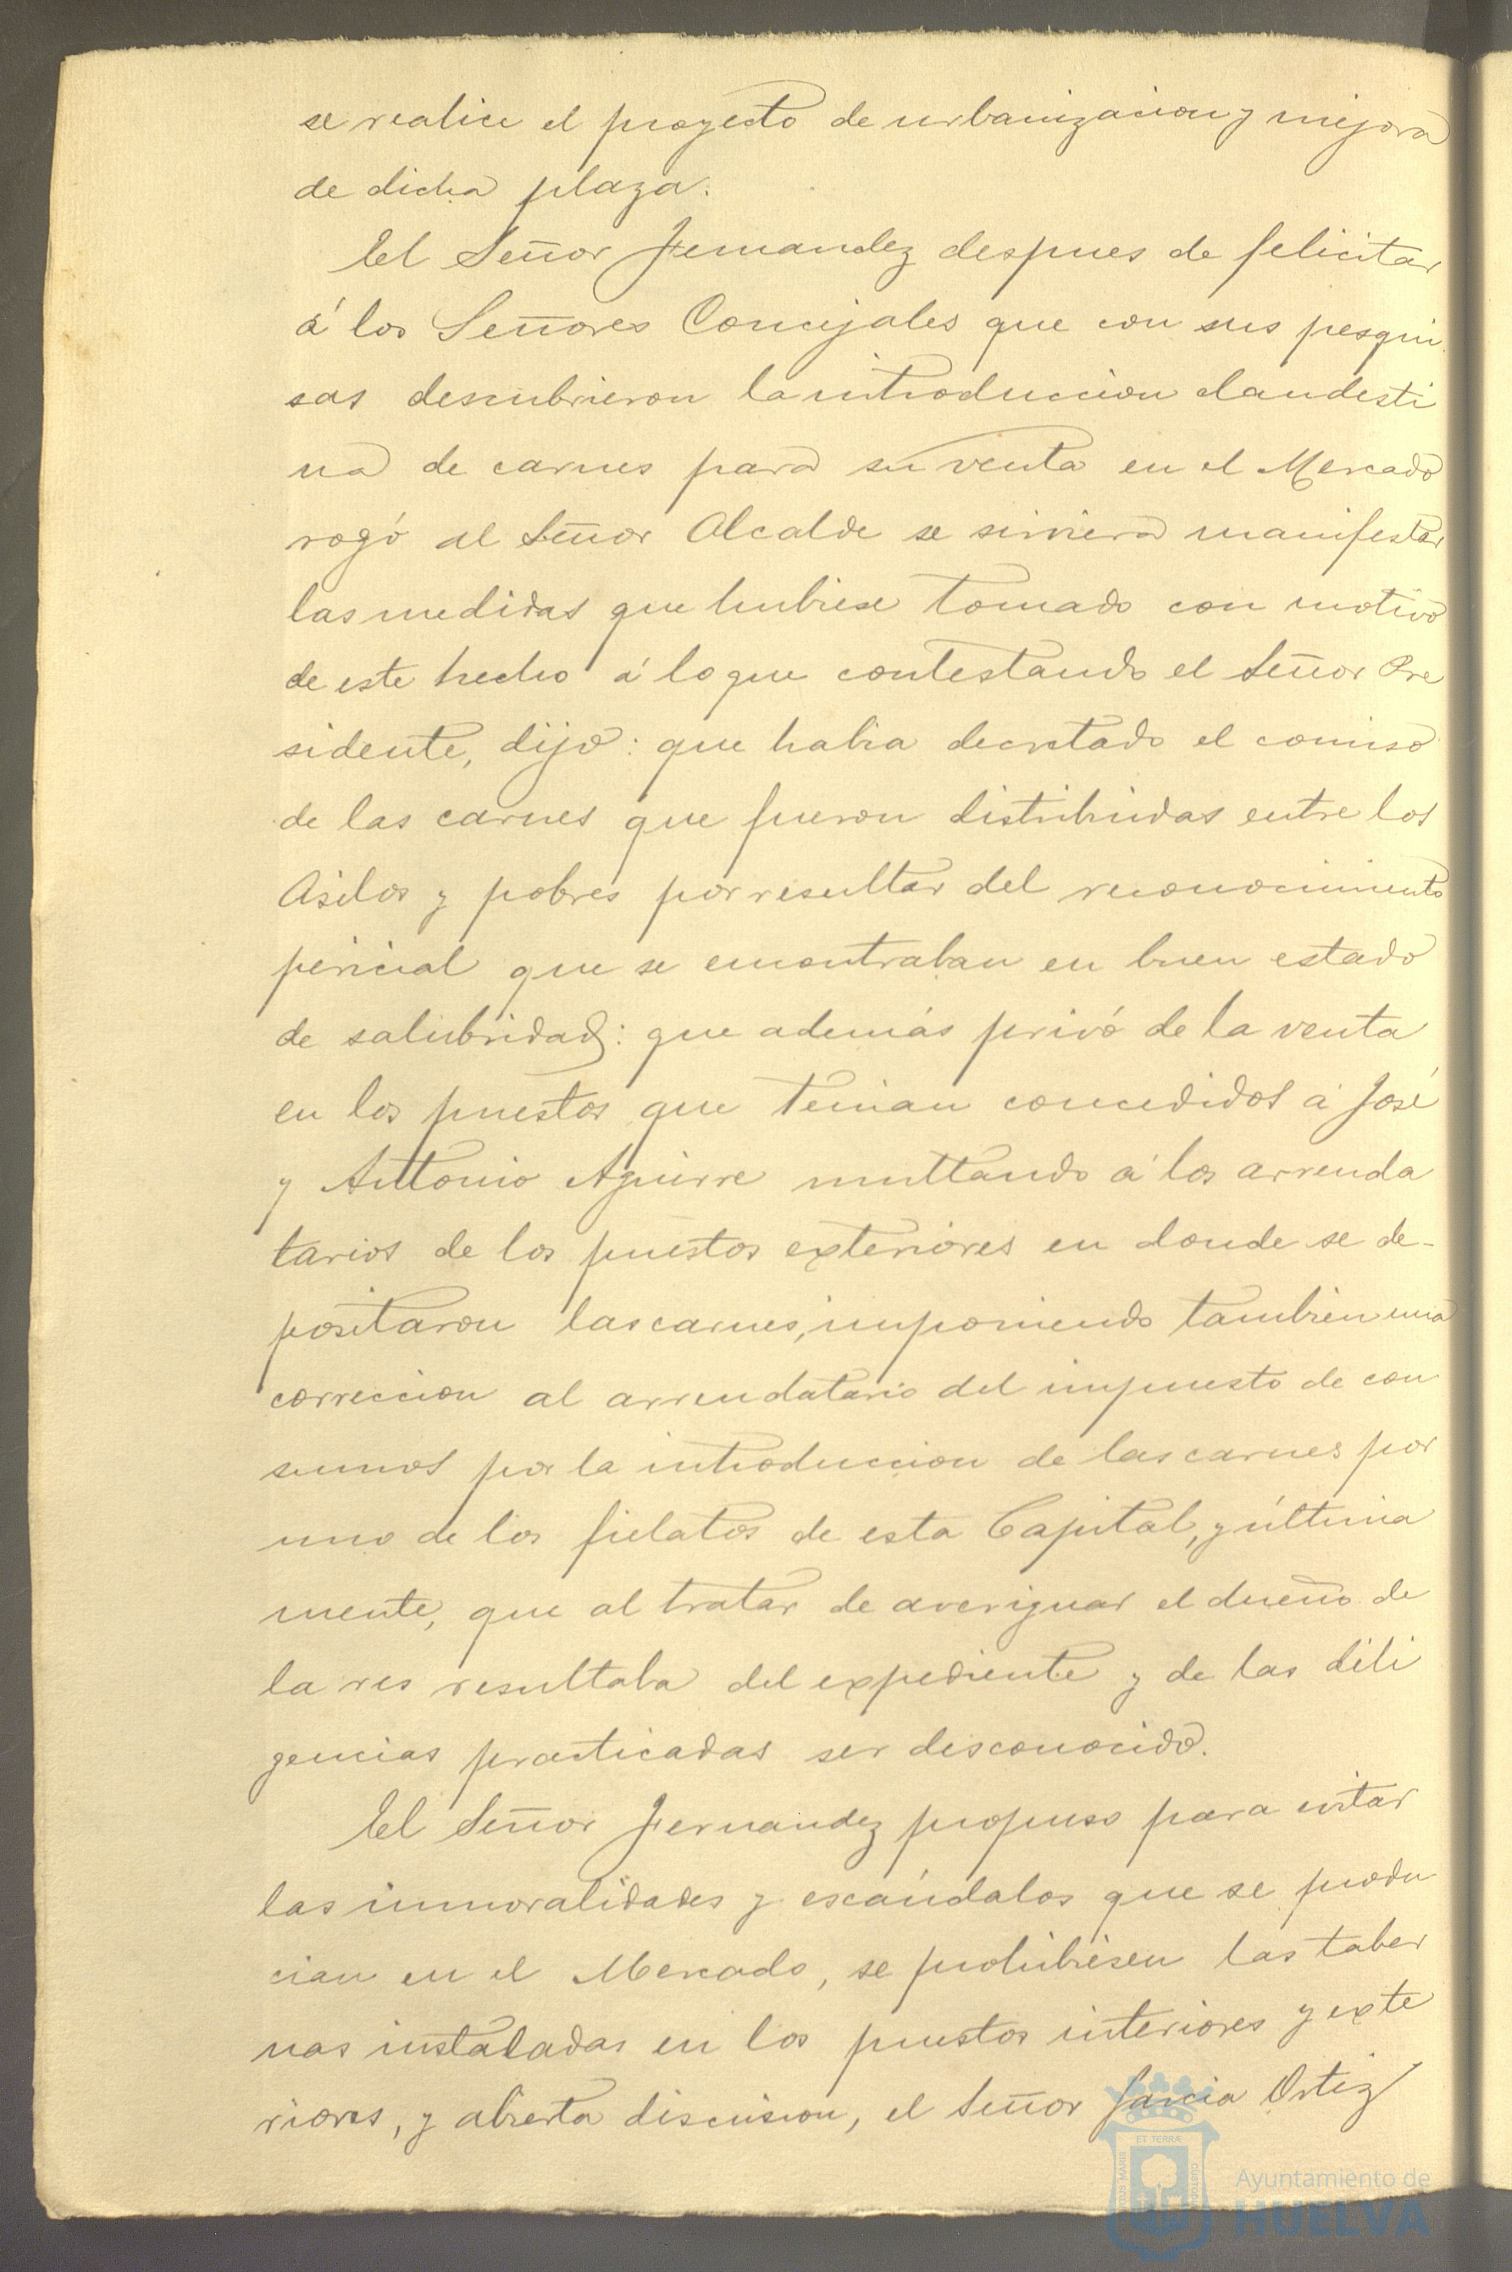 se realice el proyecto de urbanizacion y mejora
de dicha plaza.
El Señor Fernandez despues de felicitar
á los Señores Concejales que con sus pesqui
sas descubrieron la introduccion clandesti
na de carnes para su venta en el Mercado
rogó al Señor Alcalde se sirviera manifestar
las medidas que hubiese tomado con motivo
de este hecho á lo que contestando el Señor Pre
sidente, dijo: que habia decretado el comiso
de las carnes que fueron distribuidas entre los
Asilos y pobres por resultar del reconocimiento
pericial que se encontraban en buen estado
de salubridad: que además privó de la venta
en los puestos que tenian concedidos á José
y Antonio Aguirre multando á los arrenda
tarios de los puestos exteriores en donde se de-
positaron las carnes, imponiendo tambien una
correccion al arrendatario del impuesto de con
sumos por la introduccion de las carnes por
uno de los fielatos de esta Capital, y última
mente, que al tratar de averiguar el dueño de
la res resultaba del expediente y de las dili
gencias practicadas ser desconocido.
El Señor Fernandez propuso para evitar
las inmoralidades y escándalos que se produ
cian en el Mercado, se prohibiesen las taber
nas instaladas en los puestos interiores y exte
riores, y abierta discusion, el Señor Garcia Ortiz
Ayuntamiento de
HUELVA